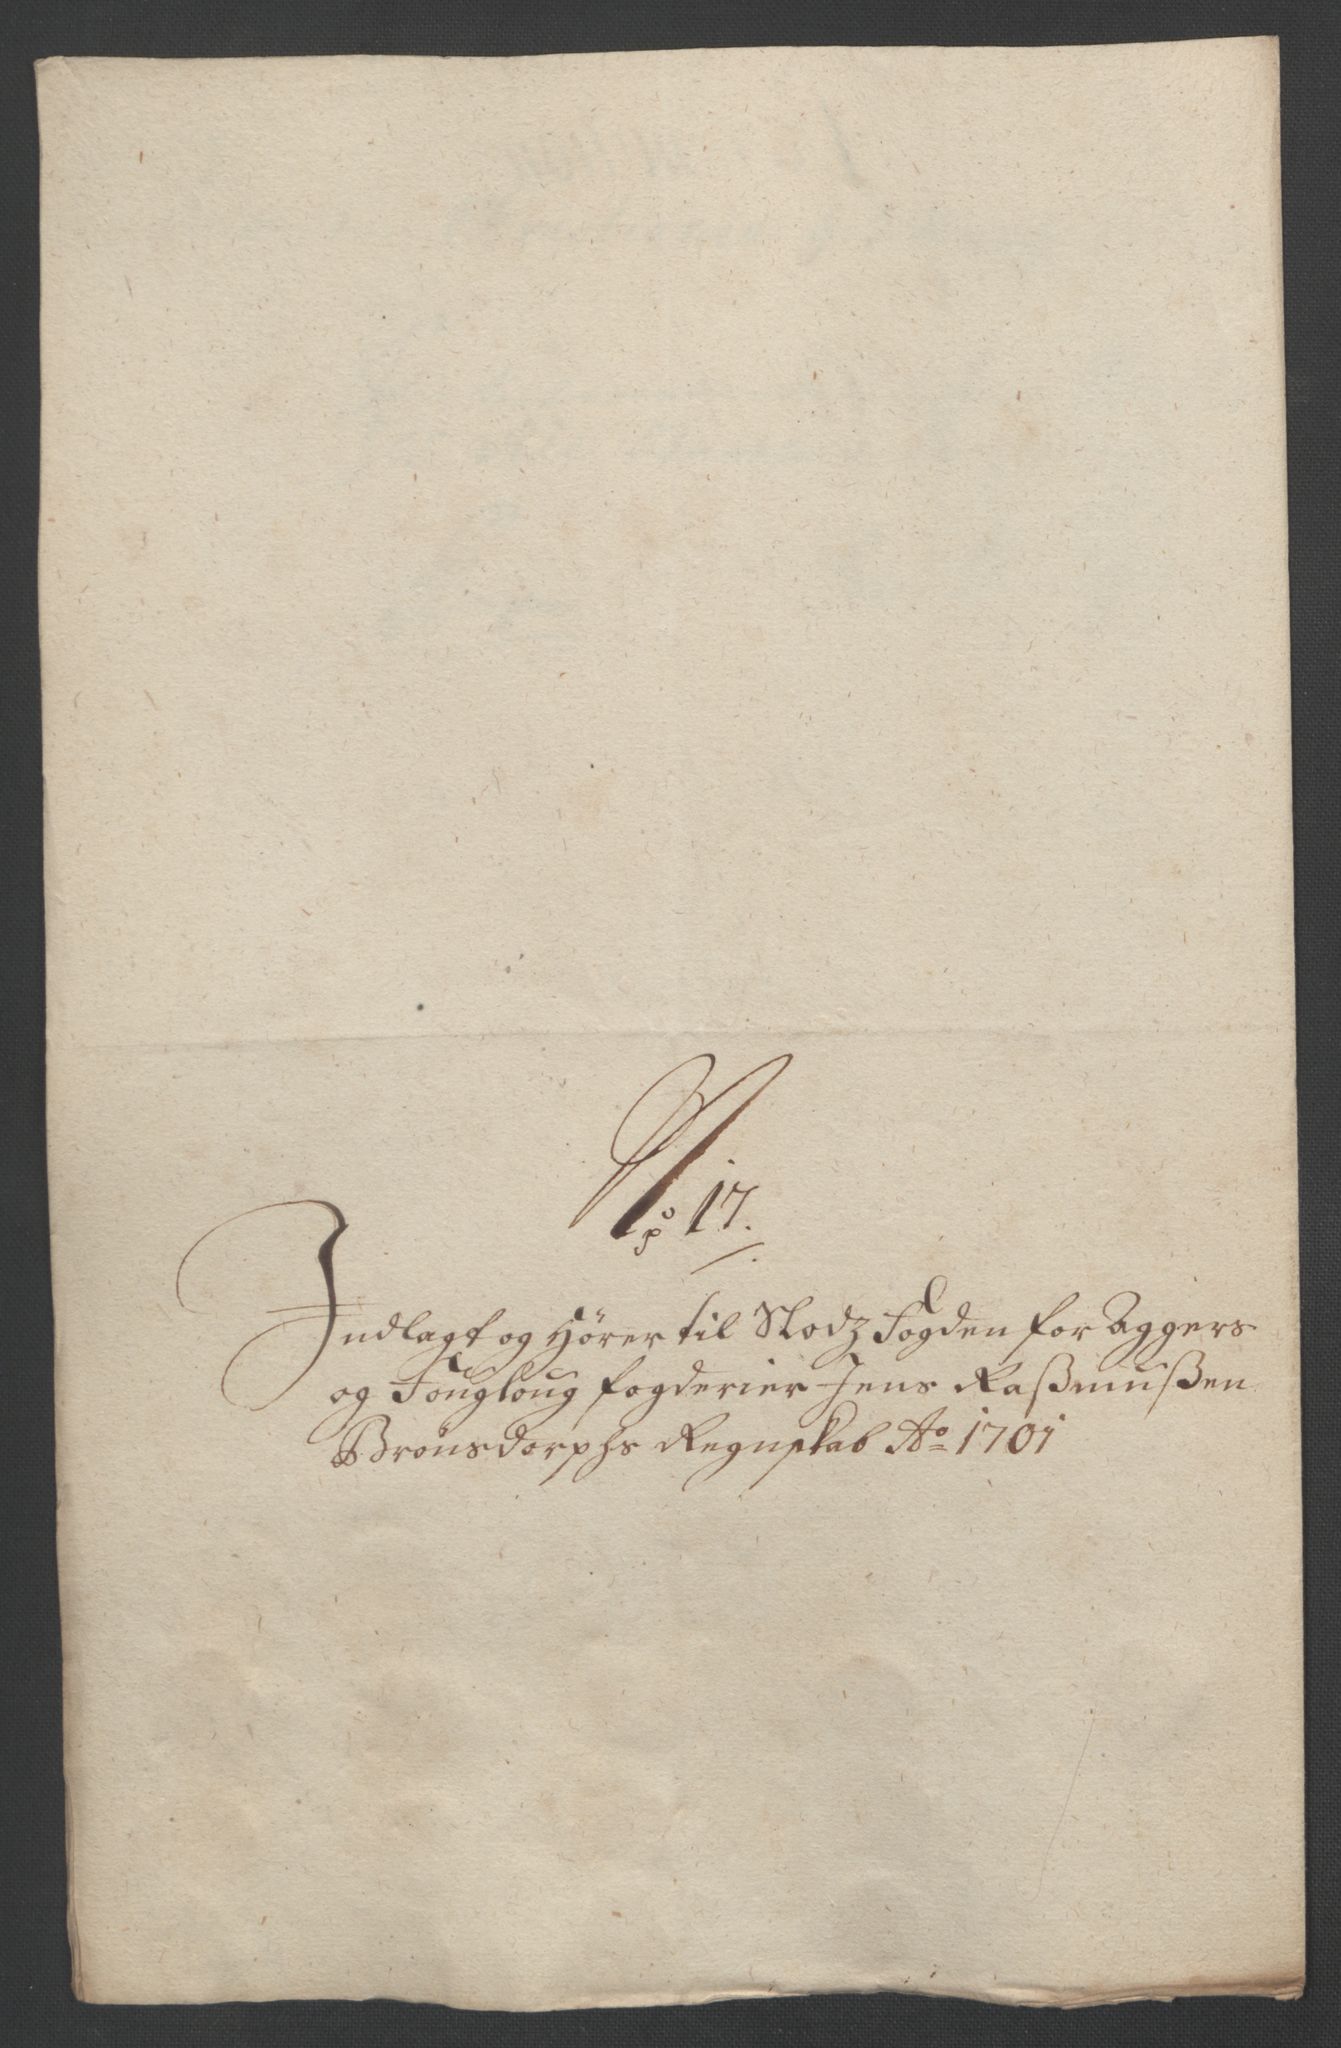 No 17.
Indlagt og hører til Slodz Fogden for Aggers
og Fougloug fogderier Jens Raßmußen
Brønsdorphs Regnskab Ao 1701